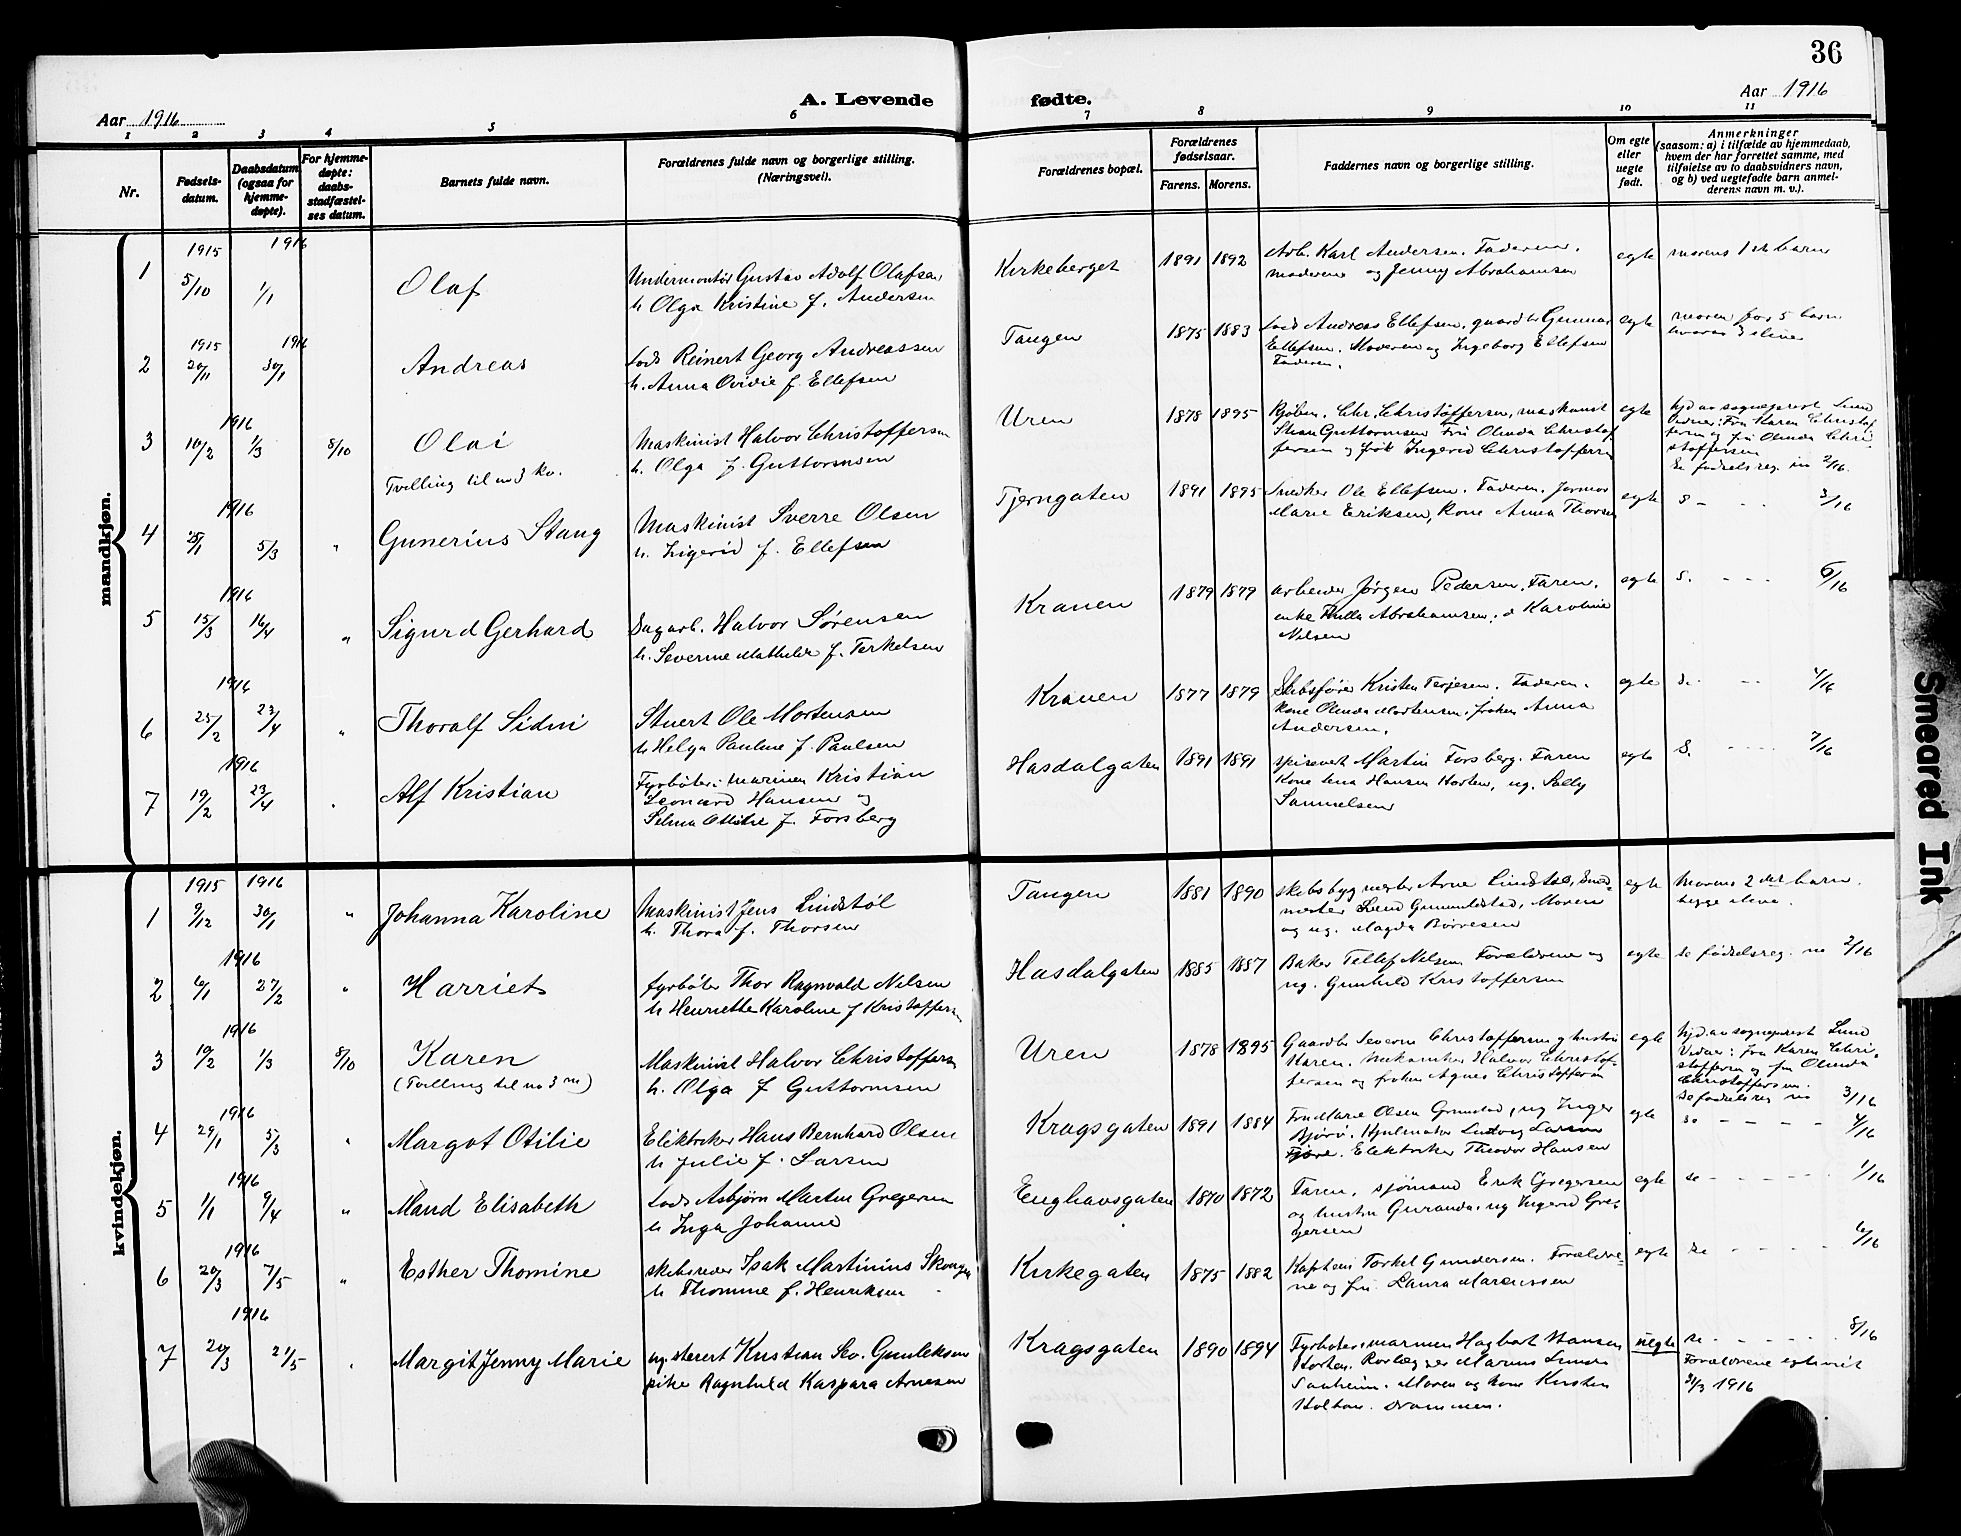 36
A. Levende fødte.
Aar 1916
Aar 1916
1 2 3 4 5 6 7 8 9 10 11
Nr.
Fødsels-
datum.
Daabsdatum
(ogsaa for
hjemme-
døpte).
For hjemme-
døpte:
daabs-
stadfæstel-
ses datum.
Barnets fulde navn.
Forældrenes fulde navn og borgerlige stilling.
(Næringsvei).
Forældrenes bopæl.
Forældrenes
fødselsaar.
Farens. Morens.
Faddernes navn og borgerlige stilling.
Om egte
eller
uegte
født.
Anmerkninger
(saasom: a) i tilfælde av hjemmedaab,
hvem der har forrettet samme, med
tilføielse av to daabsvidners navn,
og b) ved uegtefødte barn anmel-
derens navn m. v.).
mandkjøn.
1915 1916
1 5/10 1/1 Olaf
Undermontør Gustav Adolf Olafsen
h. Olga Kristine f. Andersen
Kirkeberget 1891 1892
Arb. Karl Andersen. Faderen.
moderen og Jenny Abrahamsen
egte
morens 1ste barn
1915 1916
2 20/11 30/1 Andreas
Lods Reinert Georg Andreassen
h. Anna Ovidie f. Ellefsen
Tangen 1875 1883
Lods Andreas Ellefsen, gaardbr Gunnar
Ellefsen. Moderen og Ingeborg Ellefsen
Faderen.
egte
moren før 5 barn
hvorav 3 i live
1916
3 10/2 1/3 8/10 Olai
Tvilling til no 3 kv.
Maskinist Halvor Christoffersen
h. Olga f. Guttormsen
Uren 1878 1895
Kjøbm. Chr. Christoffersen, maskinist
Guttormsen Fru Olinda Christof-
fersen og frk Ingerid Christoffersen
egte
hjd av sogneprest Lund
Vidner: Fru Karen Christof-
fersen og fru Olinda Chri-
stoffersen
Se fødselsreg. no 2/16.
1916
4 25/1 5/3 " Gunerius Stang
Maskinist Sverre Olsen
h. Ingerid f. Ellefsen
Tjerngaten 1891 1895
Snedker Ole Ellefsen. Faderen. Jormor
Marie Eriksen, Kone Anna Thorsen
egte
s - - - 3/16
1916
5 15/3 16/4 " Sigurd Gerhard
Sagarb. Halvor Sørensen
h. Severine Mathilde f. Terkelsen
Kranen 1879 1879
arbeider Jørgen Pedersen. Faren.
enke Thilla Abrahamsen. o Karoline
Nilsen
egte
s. - - - 6/16
1916
6 25/2 23/4 " Thoralf Sidni
Stuert Ole Mortensen
h Helga Pauline f. Paulsen
Kranen 1877 1879
Skibsfører Kristen Terjesen. Faderen.
Kone Olinda Mortensen. frøken Anna
Andersen.
egte
s. - - 4/16
1916
7 19/2 23/4 " Alf Kristian
Fyrbøter i marinen Kristian
Leonard Hansen og
Selma Otilie f. Forsberg
Hasdalgaten 1891 1891
Martin Forsberg. Faren
Kone Lina Hansen Horten, ug. Sally
Samuelsen
egte
S. - - - 7/16
kvindekjøn.
1915 1916
1 9/12 30/1 " Johanna Karoline
Maskinist Jens Lindstøl
h. Thora f. Thorsen
Tangen 1881 1890
skibsbygmester Arne Lindstøl, Smed-
mester Lund Moren
og ug. Magda Børresen
egte
Morens 2det barn.
begge i live.
1916
2 6/1 27/2 " Harriet
fyrbøter Thor Ragnvald Nilsen
h Henriette Karoline f Kristoffersen
Hasdalgaten 1885 1887
Baker Tellef Nilsen Forældrene og
ug. Gunhild Kristoffersen
egte
se fødselsreg. no 2/16
1916
3 10/2 1/3 8/10 Karen
(Tvilling til no 3 m)
Maskinist Halvor Christoffersen
h. Olga f Guttormsen
Uren 1878 1895
Gaardbr Severin Christoffersen og hustru
Karen. Mekaniker Halvor Christof-
fersen og frøken Agnes Christoffersen
egte
hjd. av sogneprest Lund
Vidner: fru Karen Chri-
stoffersen og fru Olinda
Christoffersen.
se fødselsreg no 3/16
1916
4 29/1 5/3 " Margot Otilie
Elektriker Hans Bernhard Olsen
h Julie f. Larsen
Kragsgaten 1891 1884
Fru Marie Olsen Grimstad, ug Inger
Bjørö. Ludvig Larsen
Elektriker Theodor Hansen
egte
se - - - - 4/16
1916
5 1/1 9/4 " Maud Elisabeth
Lods Asbjørn Martin Gregersen
h Inga Johanne
Enghavsgaten 1870 1872
Faren, sjømand Erik Gregersen
og hustru Guranda. ug Ingerid Gre-
gersen
egte
se - - - - 1/16
1916
6 20/3 7/5 " Esther Thomine
skibsreder Isak Martinius
h Thomine f. Henriksen
Kirkegaten 1875 1882
Kaptein Torkel Gundersen. Forældre-
ne og fru Laura Marcussen
egte
se - - - - 6/16
1916
7 20/3 21/5 " Margit Jenny Marie
ug. stuert Kristian Sev. Gunleksen
pike Ragnhild Kaspara Arnesen
Kragsgaten 1890 1894
Fyrbøter i marinen Hagbart Hansen
Horten. Rørlægger Marius Lunde
Saaheim. Moren og kone Kirsten
Holtan. Drammen.
uegte
se - - - - 8/16
Forældrene egteviet
31/3 1916
Smeared Ink